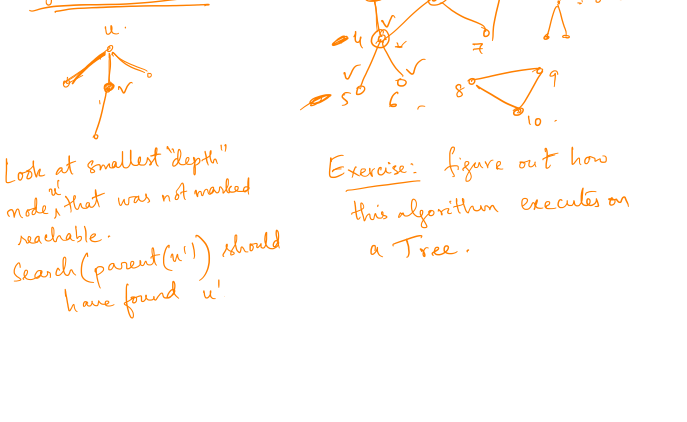 u
v
Look at smallest "depth"
node u', that was not marked
reachable.
Search(parent(u')) should
have found u'.
4
7
5
6
8
9
10
Exercise: figure out how
this algorithm executes on
a Tree.